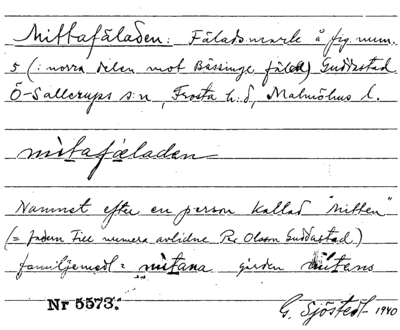 Mittafäladen: Fäladsmark å fig. num.
5 (: norra delen mot Bässinge fälad) Guddastad
Ö-Sallerups s:n, Frosta h:d, Malmöhus l.
mìtafæladen
Namnet efter en person kallad "Mitten"
(= fadern till numera avlidne Per Olsson Guddastad)
familjemedl = mìtana gården mìtans
Nr 5573.
G. Sjöstedt 1940